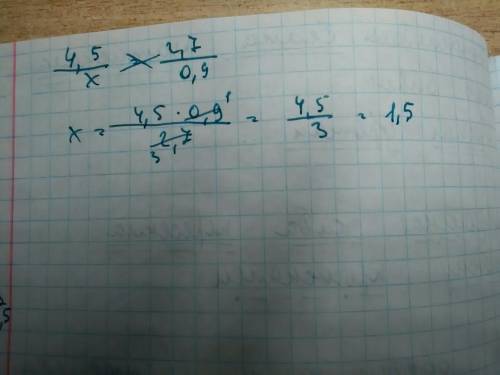 4,5/x = 2,7/0,9
x = 4,5 · 0,9 1 / 2,7 3 = 4,5/3 = 1,5